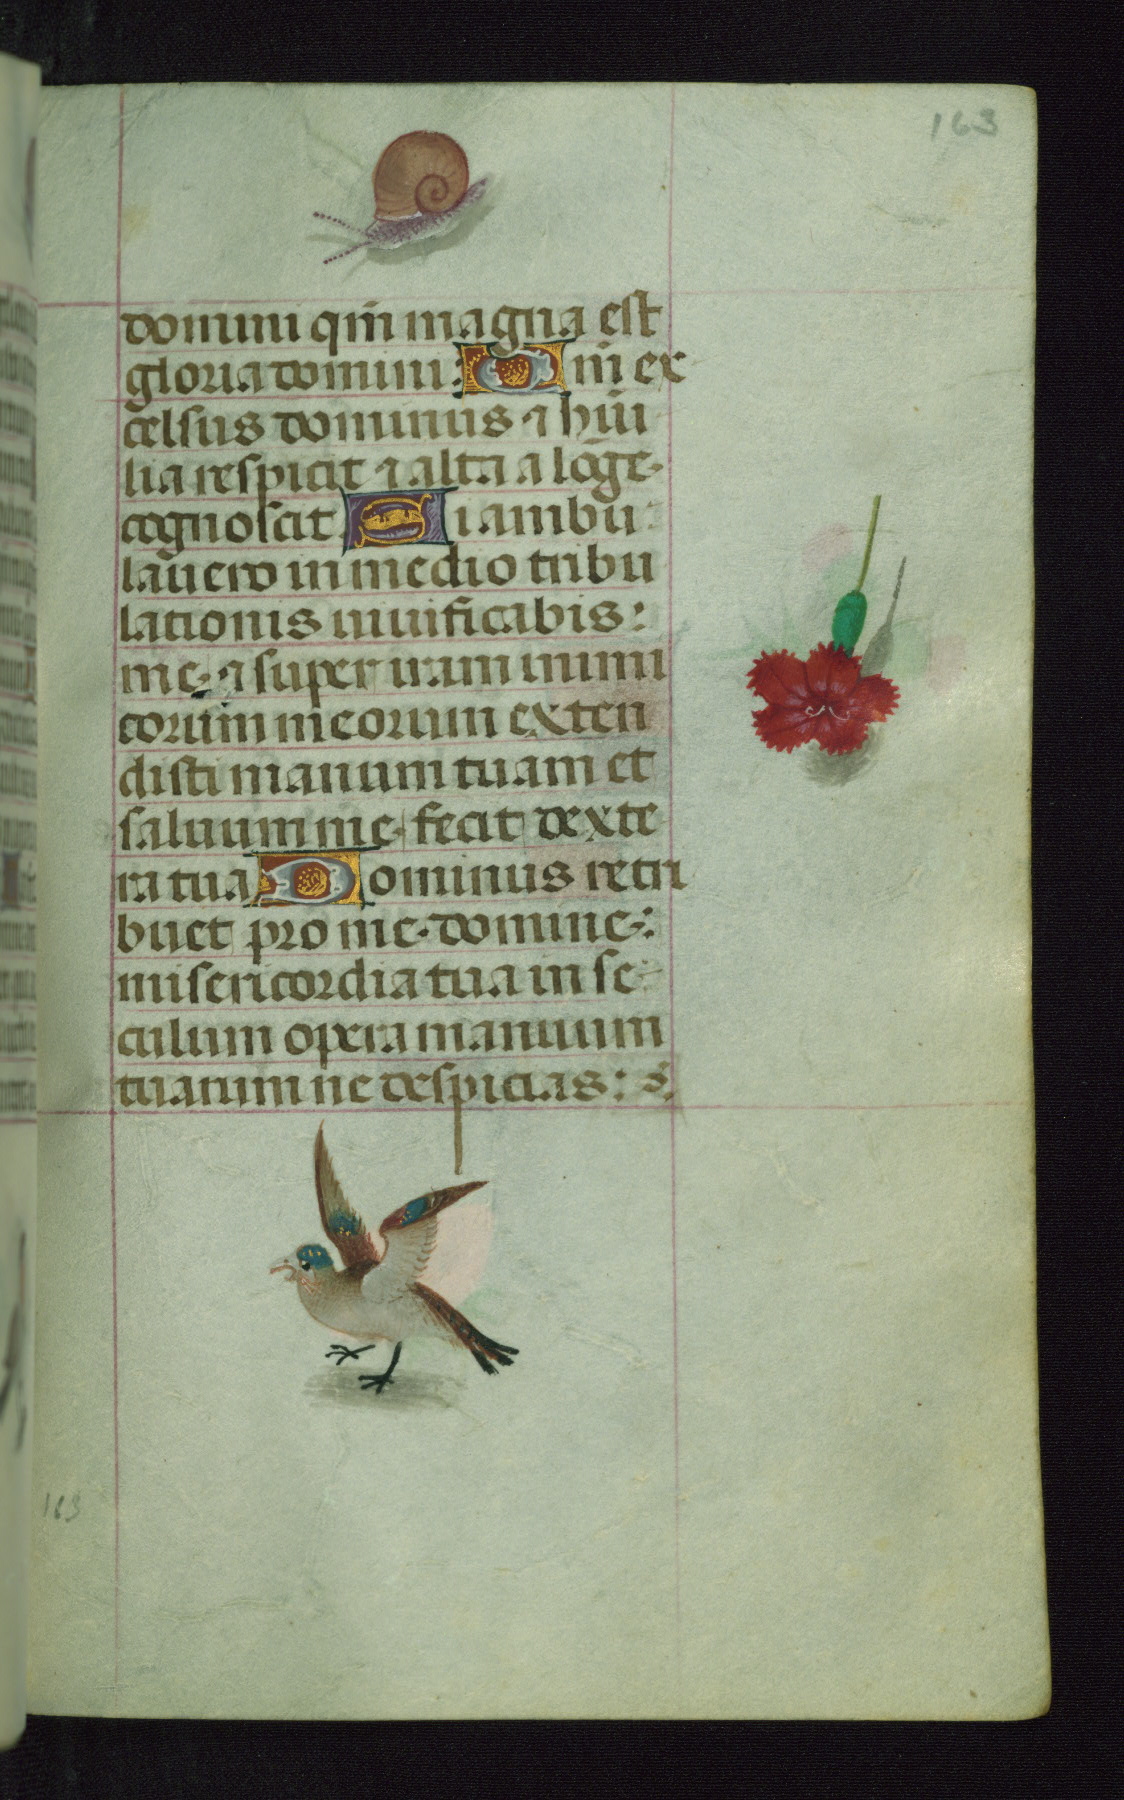 163
domini qm̄ magna est
gloria domini: Qm̄ ex
celsus dominus ⁊ hūi
lia respicit ⁊ alta a lōge
cognoscit Si ambu
lavero in medio tribu
lationis vivificabis:
me· ⁊ super iram inimi
corum meorum exten
disti manum tuam et
salvum me fecit dexte
ra tua Dominus retri
buet pro me· domine:
misericordia tua in se
culum opera manuum
tuarum ne despicias:
163